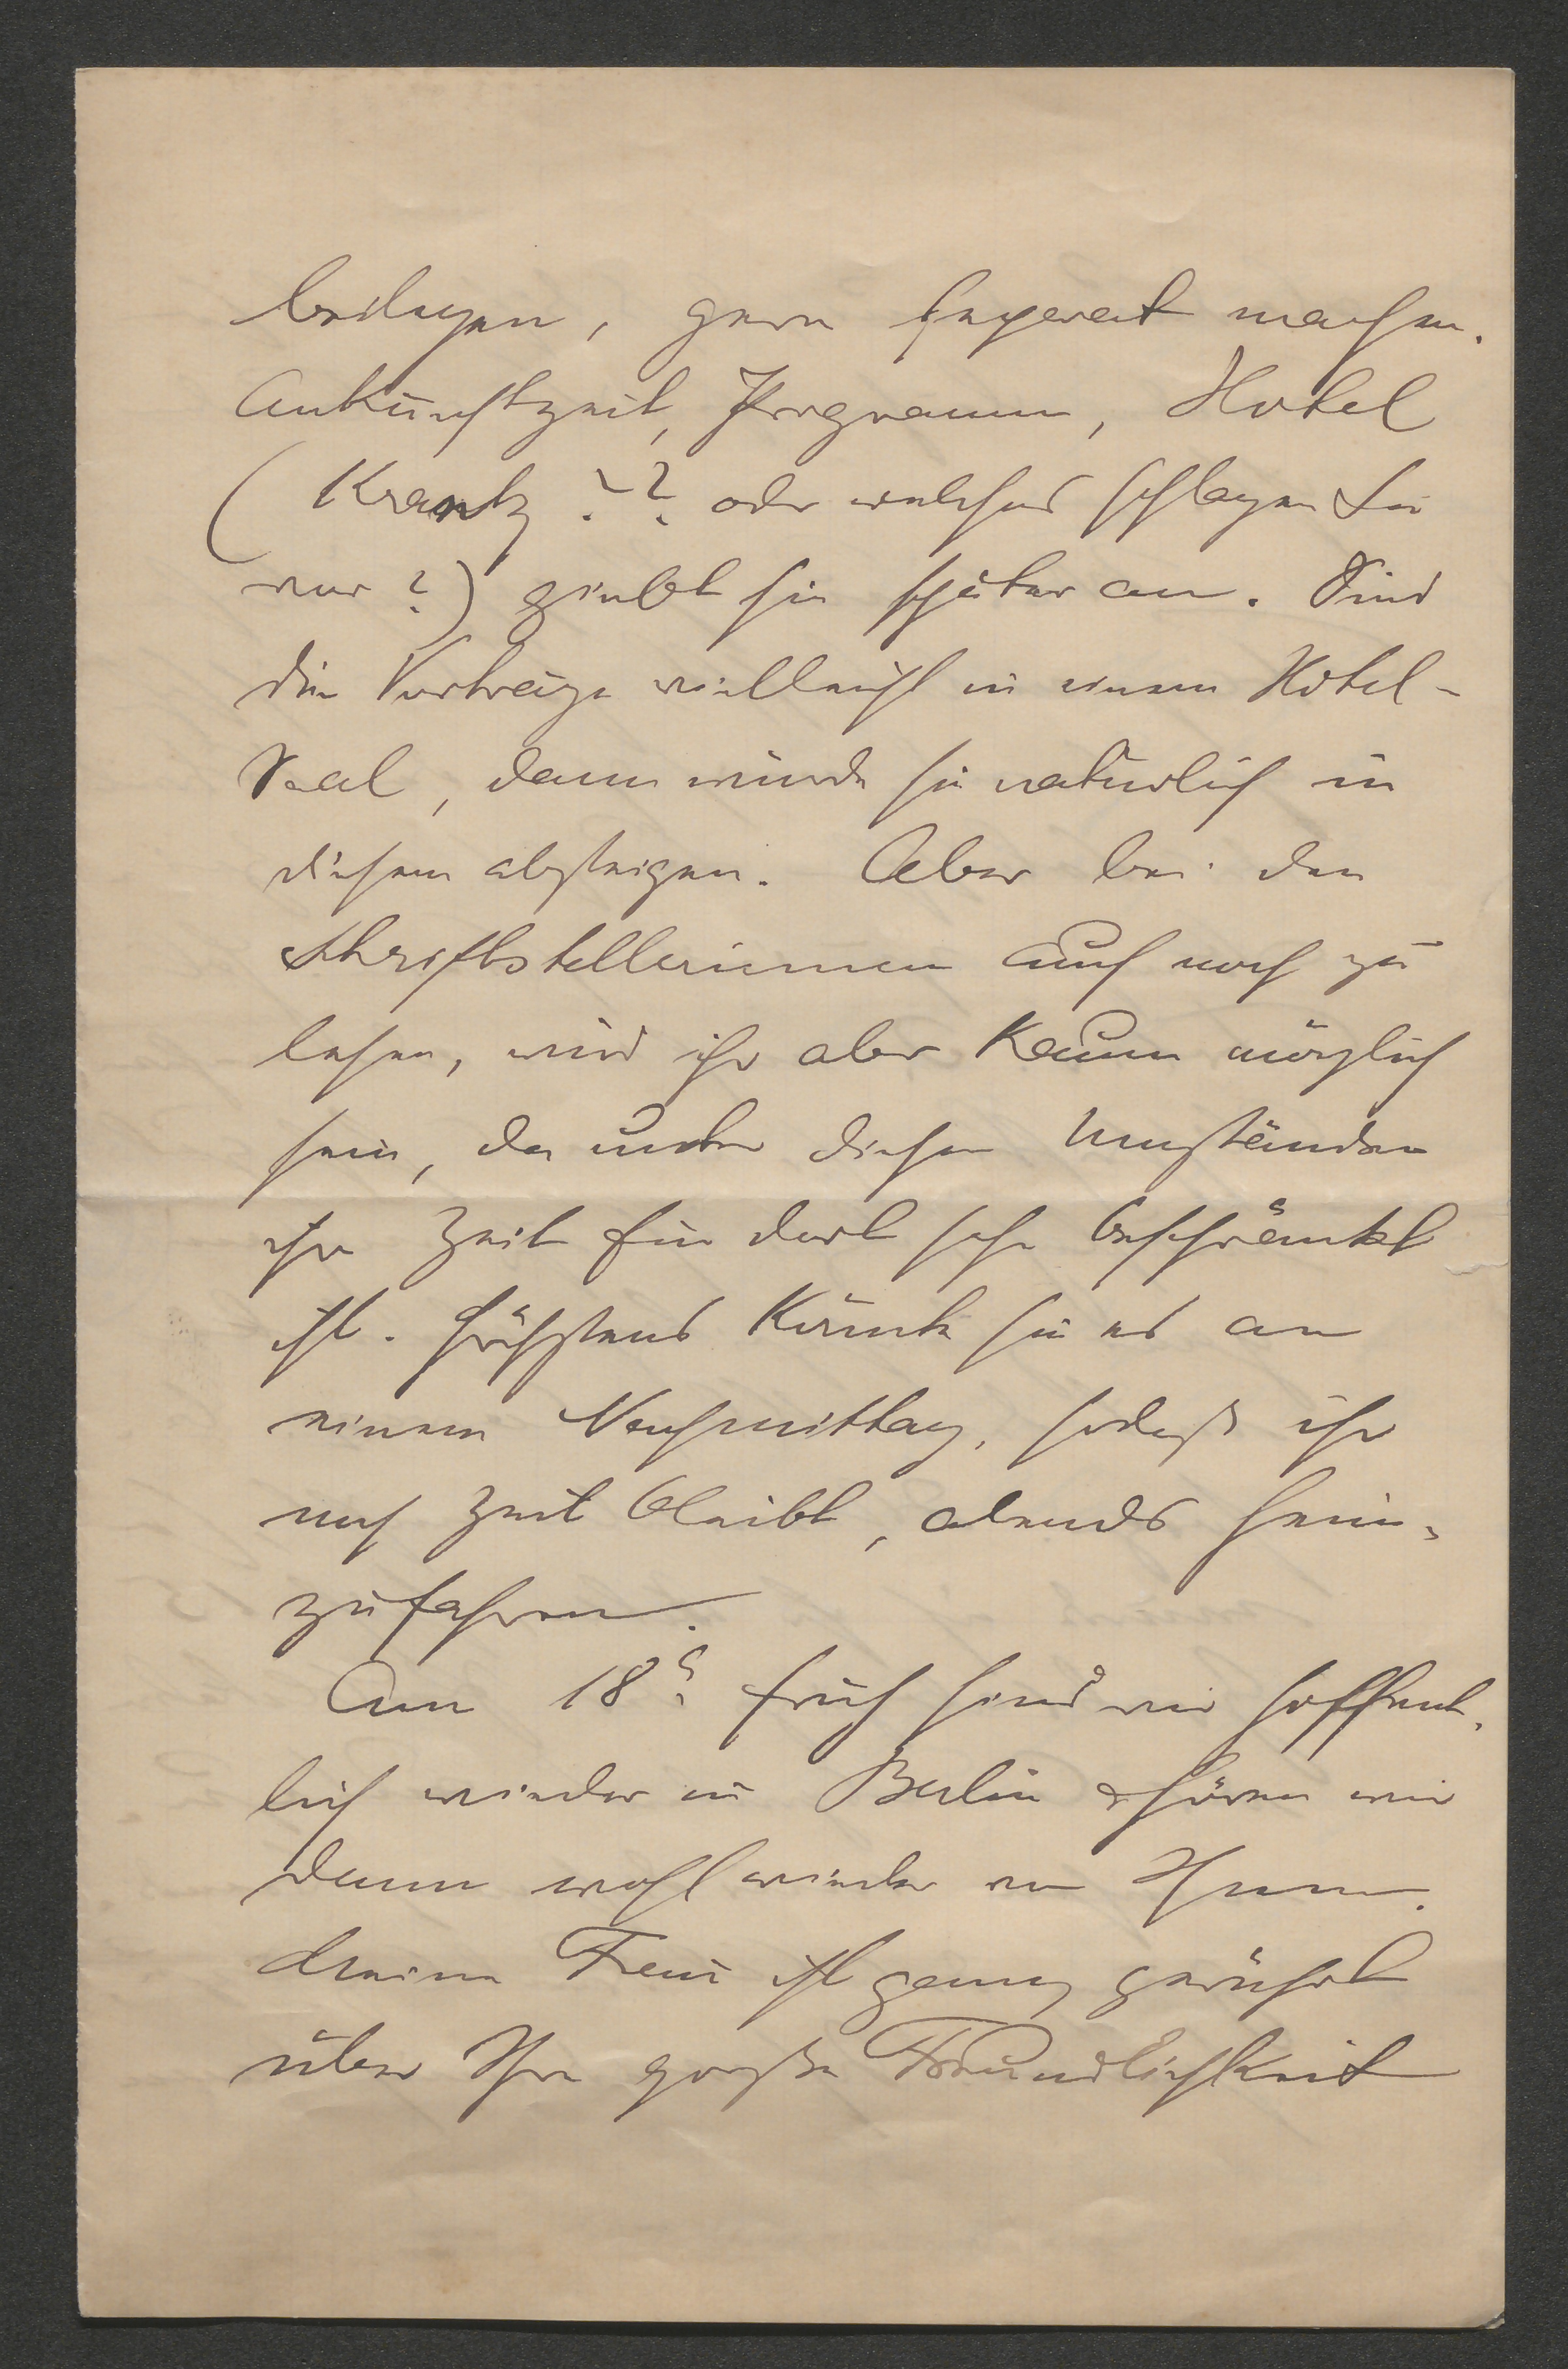 beilagen, gern separat machen.
Ankunftszeit, Programm, Hotel
(Krantz ?? oder welches schlagen Sie
vor?) giebt sie später an. Sind
die Vorträge vielleicht in einem Hotel-
Saal, dann würde sie natürlich in
diesem absteigen. Aber bei den
Schriftstellerinnen auch noch zu
lesen, wird ihr aber kaum möglich
sein, da unter diesen Umständen
ihre Zeit für dort sehr beschränkt
ist. Höchstens könnte sie es an
einem Nachmittag, sodaß ihr
noch Zeit bleibt, abends heim-
zufahren.
Am 18. früh sind wir hoffent-
lich wieder in Berlin & hören wir
dann wohl wieder von Ihnen.
Meine Frau ist ganz gerührt
über Ihre große Freundlichkeit